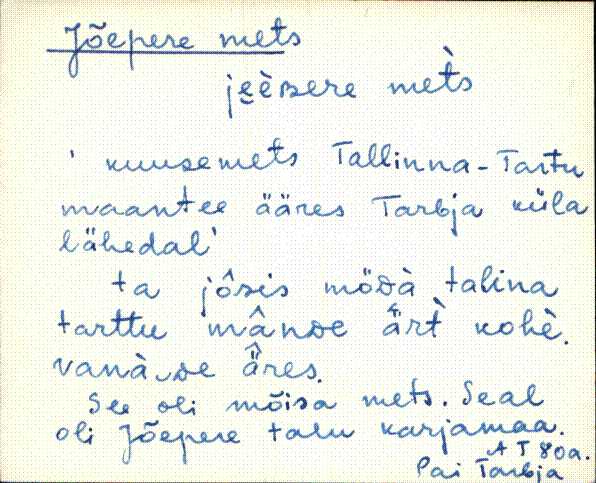 Jõepere mets
je̮èʙere met̀s
' kuusemets Tallinna-Tartu
maantee ääres Tarbja küla
lähedal'
ta jô̬sis möᴅà talina
tarttu mân​ᴅe ä̂rt̀ kohè.
vanà ᴅe ä̂res.
See oli mõisa mets. Seal
oli Jõepere talu karjamaa.
AT 80a.
Pai Tarbja